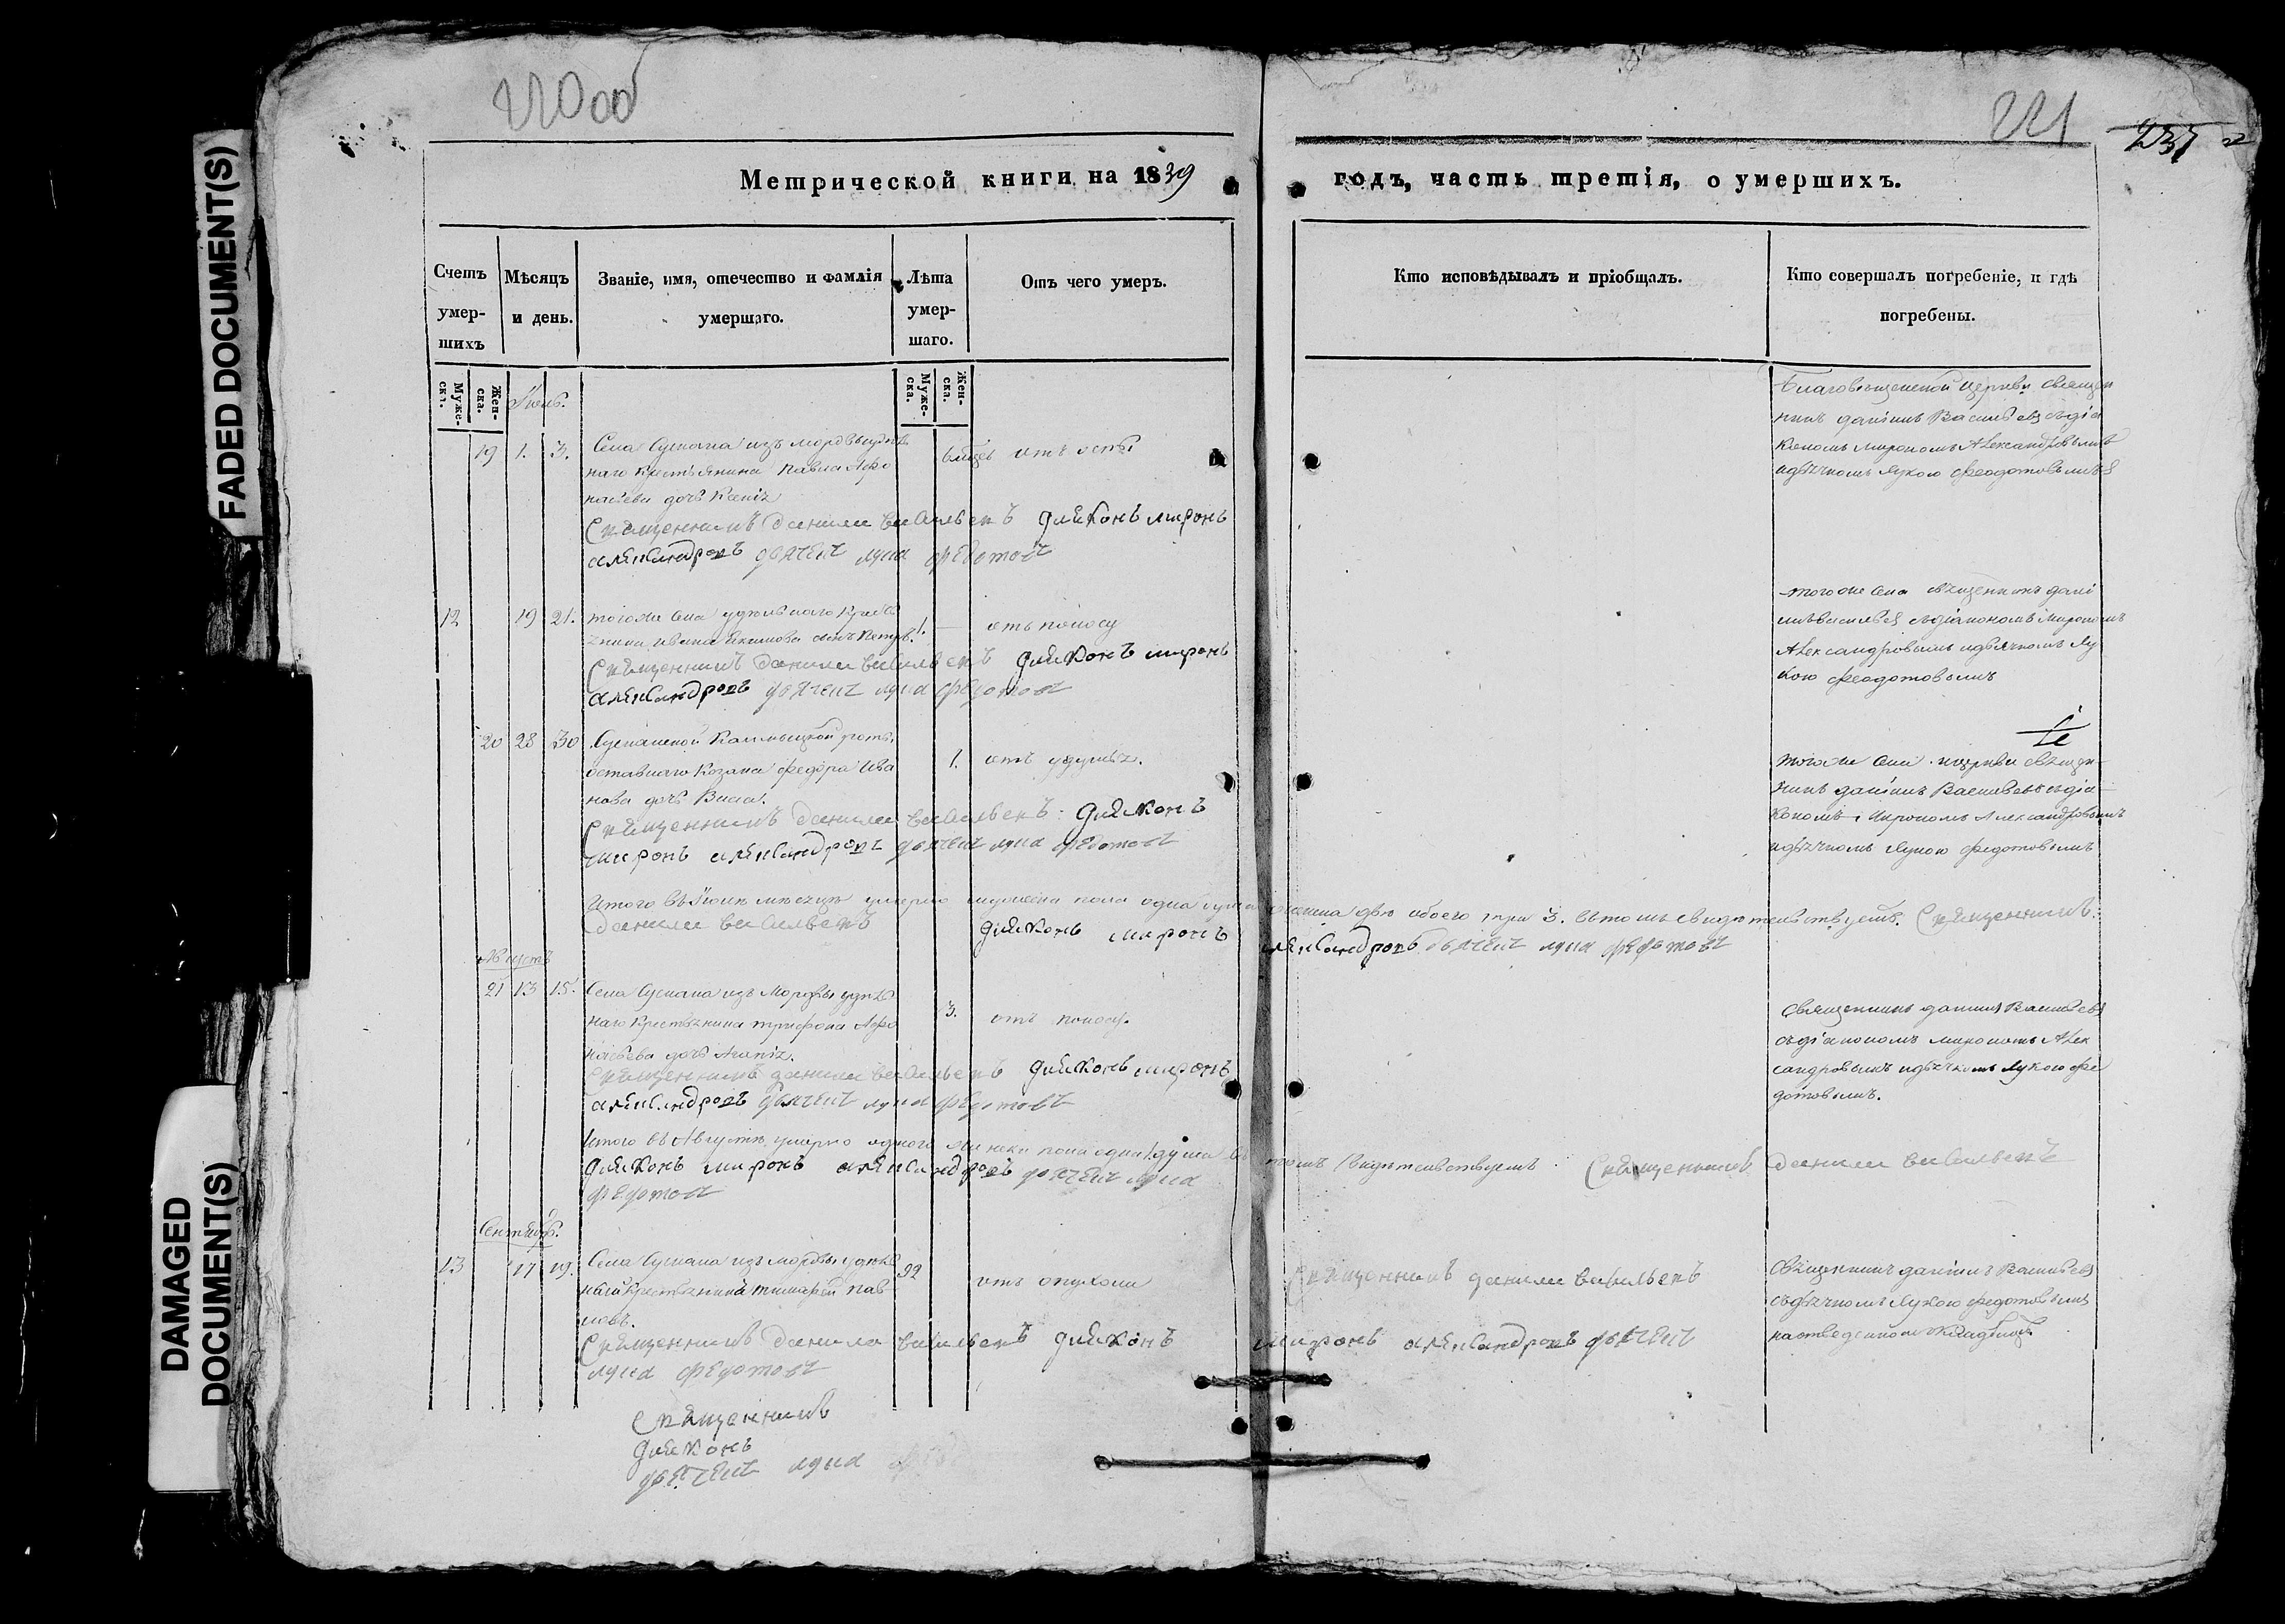 FADED DOCUMENT(S)
DAMAGED DOCUMENT(S)
221
237
Метрической книги на 1839 годъ, часть третія, о умершихъ.
Счетъ умер-шихъ
Мѣсяцъ и день.
Званіе, имя, отечество и фамлія умершаго.
Лѣта умер-шаго.
Отъ чего умеръ.
Кто исповѣдывалъ и пріобщалъ.
Кто совершалъ погребеніе, и гдѣ погребены.
Муже-ска.
Жен-ска.
Муже-ска.
Жен-ска.
Іюль.
19 1. 3.
Села Сускана изъ мордвы удѣль
наго крестьянина Павла Афо
насьева дочь
отъ оспы
Священникъ Данила Васильевъ Диаконъ Миронъ
Александровъ дьячекъ Лука Федотовъ
Благовѣщенской церкви священ
никъ Даніилъ Васильевъ съ діа
кономъ Мирономъ Александровымъ
и дьячкомъ Лукою Феодотовымъ
12 19 21.
тогоже села удѣльнаго кресть
янина Ивана сынъ Петръ
1.
отъ поносу
Священникъ Данила Васильевъ Диаконъ Миронъ
Александровъ дьячекъ Лука Федотовъ
тогоже села священникъ Дані
илъ Васильевъ съ діакономъ Мирономъ
Александровымъ и дьячкомъ Лу
кою Феодотовымъ
20 28 30
Сусканской Калмыцкой роты
отставнаго козака Федора Ива
нова дочь
1.
отъ удушья.
Священникъ Данила Васильевъ Диаконъ
Миронъ Александровъ дьячекъ Лука Федотовъ
тогоже села церкви священ
никъ Даніилъ Васильевъ съ діа
кономъ Мирономъ Александровымъ
и дьячкомъ Лукою Федотовымъ
Итого въ Іюлѣ мѣсяцѣ умерло мужеска пола одна душа женска двѣ обоего три 3. въ томъ свидѣтельствуемъ. Священникъ
Данила Васильевъ Диаконъ Миронъ Александровъ дьячекъ Лука Федотовъ
Августъ
21 13 15.
Села Сускана изъ Мордвы удѣль
наго крестьянина Трифона Афо
насьева дочь
3.
отъ поносу.
Священникъ Данила Васильевъ Диаконъ Миронъ
Александровъ дьячекъ Лука Федотовъ
Священникъ Даніилъ Васильевъ
съ діакономъ Мирономъ Алек
сандровымъ и дьячкомъ Лукою Фе
дотовымъ.
Итого въ Августѣ умерло женска пола одна душа въ томъ свидѣтельствуемъ Священникъ Данила Васильевъ
Диаконъ Миронъ Александровъ дьячекъ Лука
Федотовъ
Сентябрь.
13 17 19.
Села Сускана изъ мордвы удѣль
ной крестьянинъ Тимофей Пав
ловъ.
92
отъ опухоли
Священникъ Данила Васильевъ
Священникъ Даніилъ Васильевъ
съ дьячкомъ Лукою Федотовымъ
на отведенномъ кладбищѣ
Священникъ Данила Васильевъ Диаконъ Миронъ Александровъ дьячекъ
Лука Федотовъ
Священникъ
Диаконъ
дьячекъ Лука